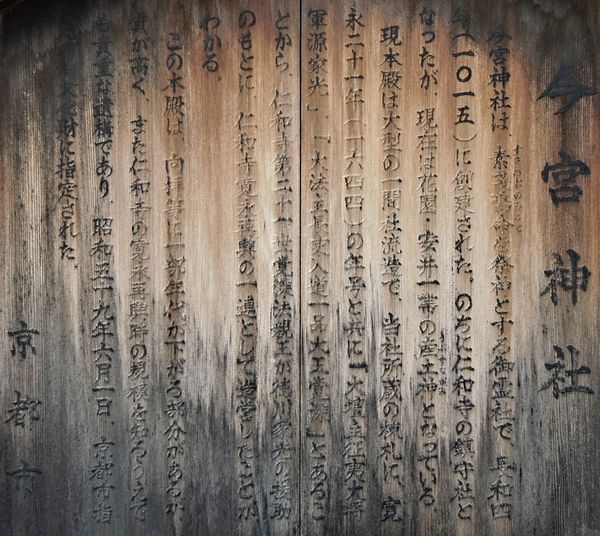 今宮神社
今宮神社は、素盞嗚命を祭神とする御霊社で、長和四
すさのおのみこと
年(一〇一五)に創建された。のちに仁和寺の鎮守社と
なったが、現在は花園・安井一帯の産土神となっている。
現本殿は大型の一間社流造で、当社所蔵の棟札に、寛
永二十一年(一六四四)の年号と共に「大壇主征夷大将
軍源家光」、「大法主 入道一品大王覚深」とあるこ
とから、仁和寺第二十一世覚深法親王が徳川家光の援助
のもとに、仁和寺寛永再興の一連として造営したことが
わかる。
この本殿は、向拝等に一部年代が下がる部分があるが
質が高く、また仁和寺の寛永再興時の規模を伝えるうえで
も貴重な遺構であり、昭和五十九年六月一日、京都市指
定有形文化財に指定された。
京都市